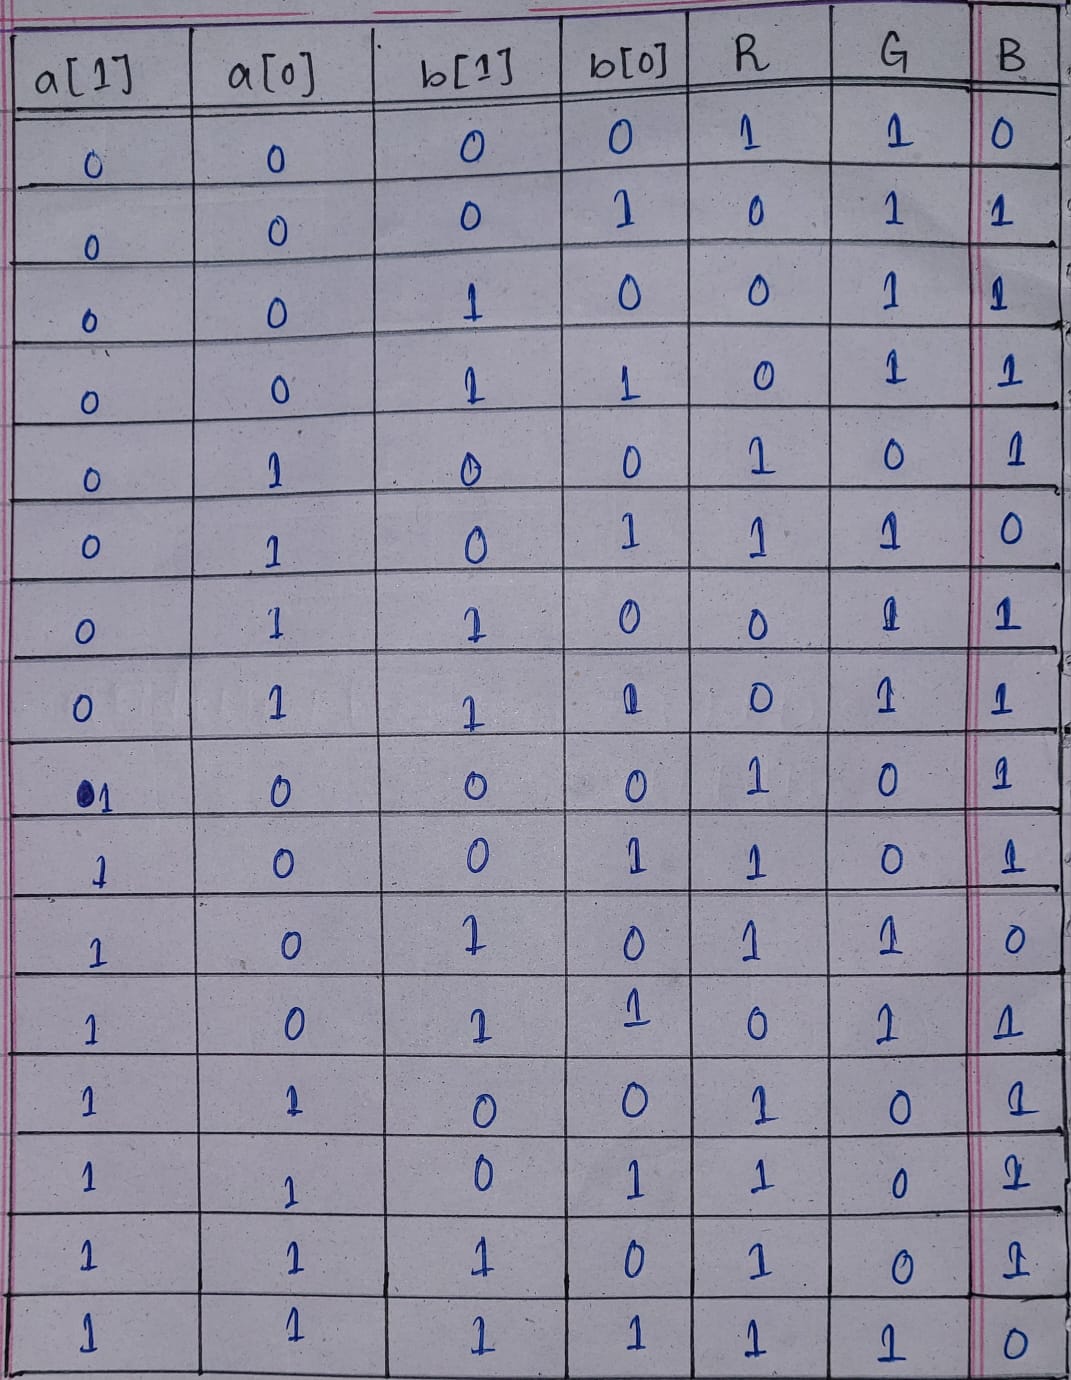 a[1] a[0] b[1] b[0] R G B
0 0 0 0 1 1 0
0 0 0 1 0 1 1
0 0 1 0 0 1 1
0 0 1 1 0 1 1
0 1 0 0 1 0 1
0 1 0 1 1 1 0
0 1 1 0 0 1 1
0 1 1 1 0 1 1
1 0 0 0 1 0 1
1 0 0 1 1 0 1
1 0 1 0 1 1 0
1 0 1 1 0 1 1
1 1 0 0 1 0 1
1 1 0 1 1 0 1
1 1 1 0 1 0 1
1 1 1 1 1 1 0